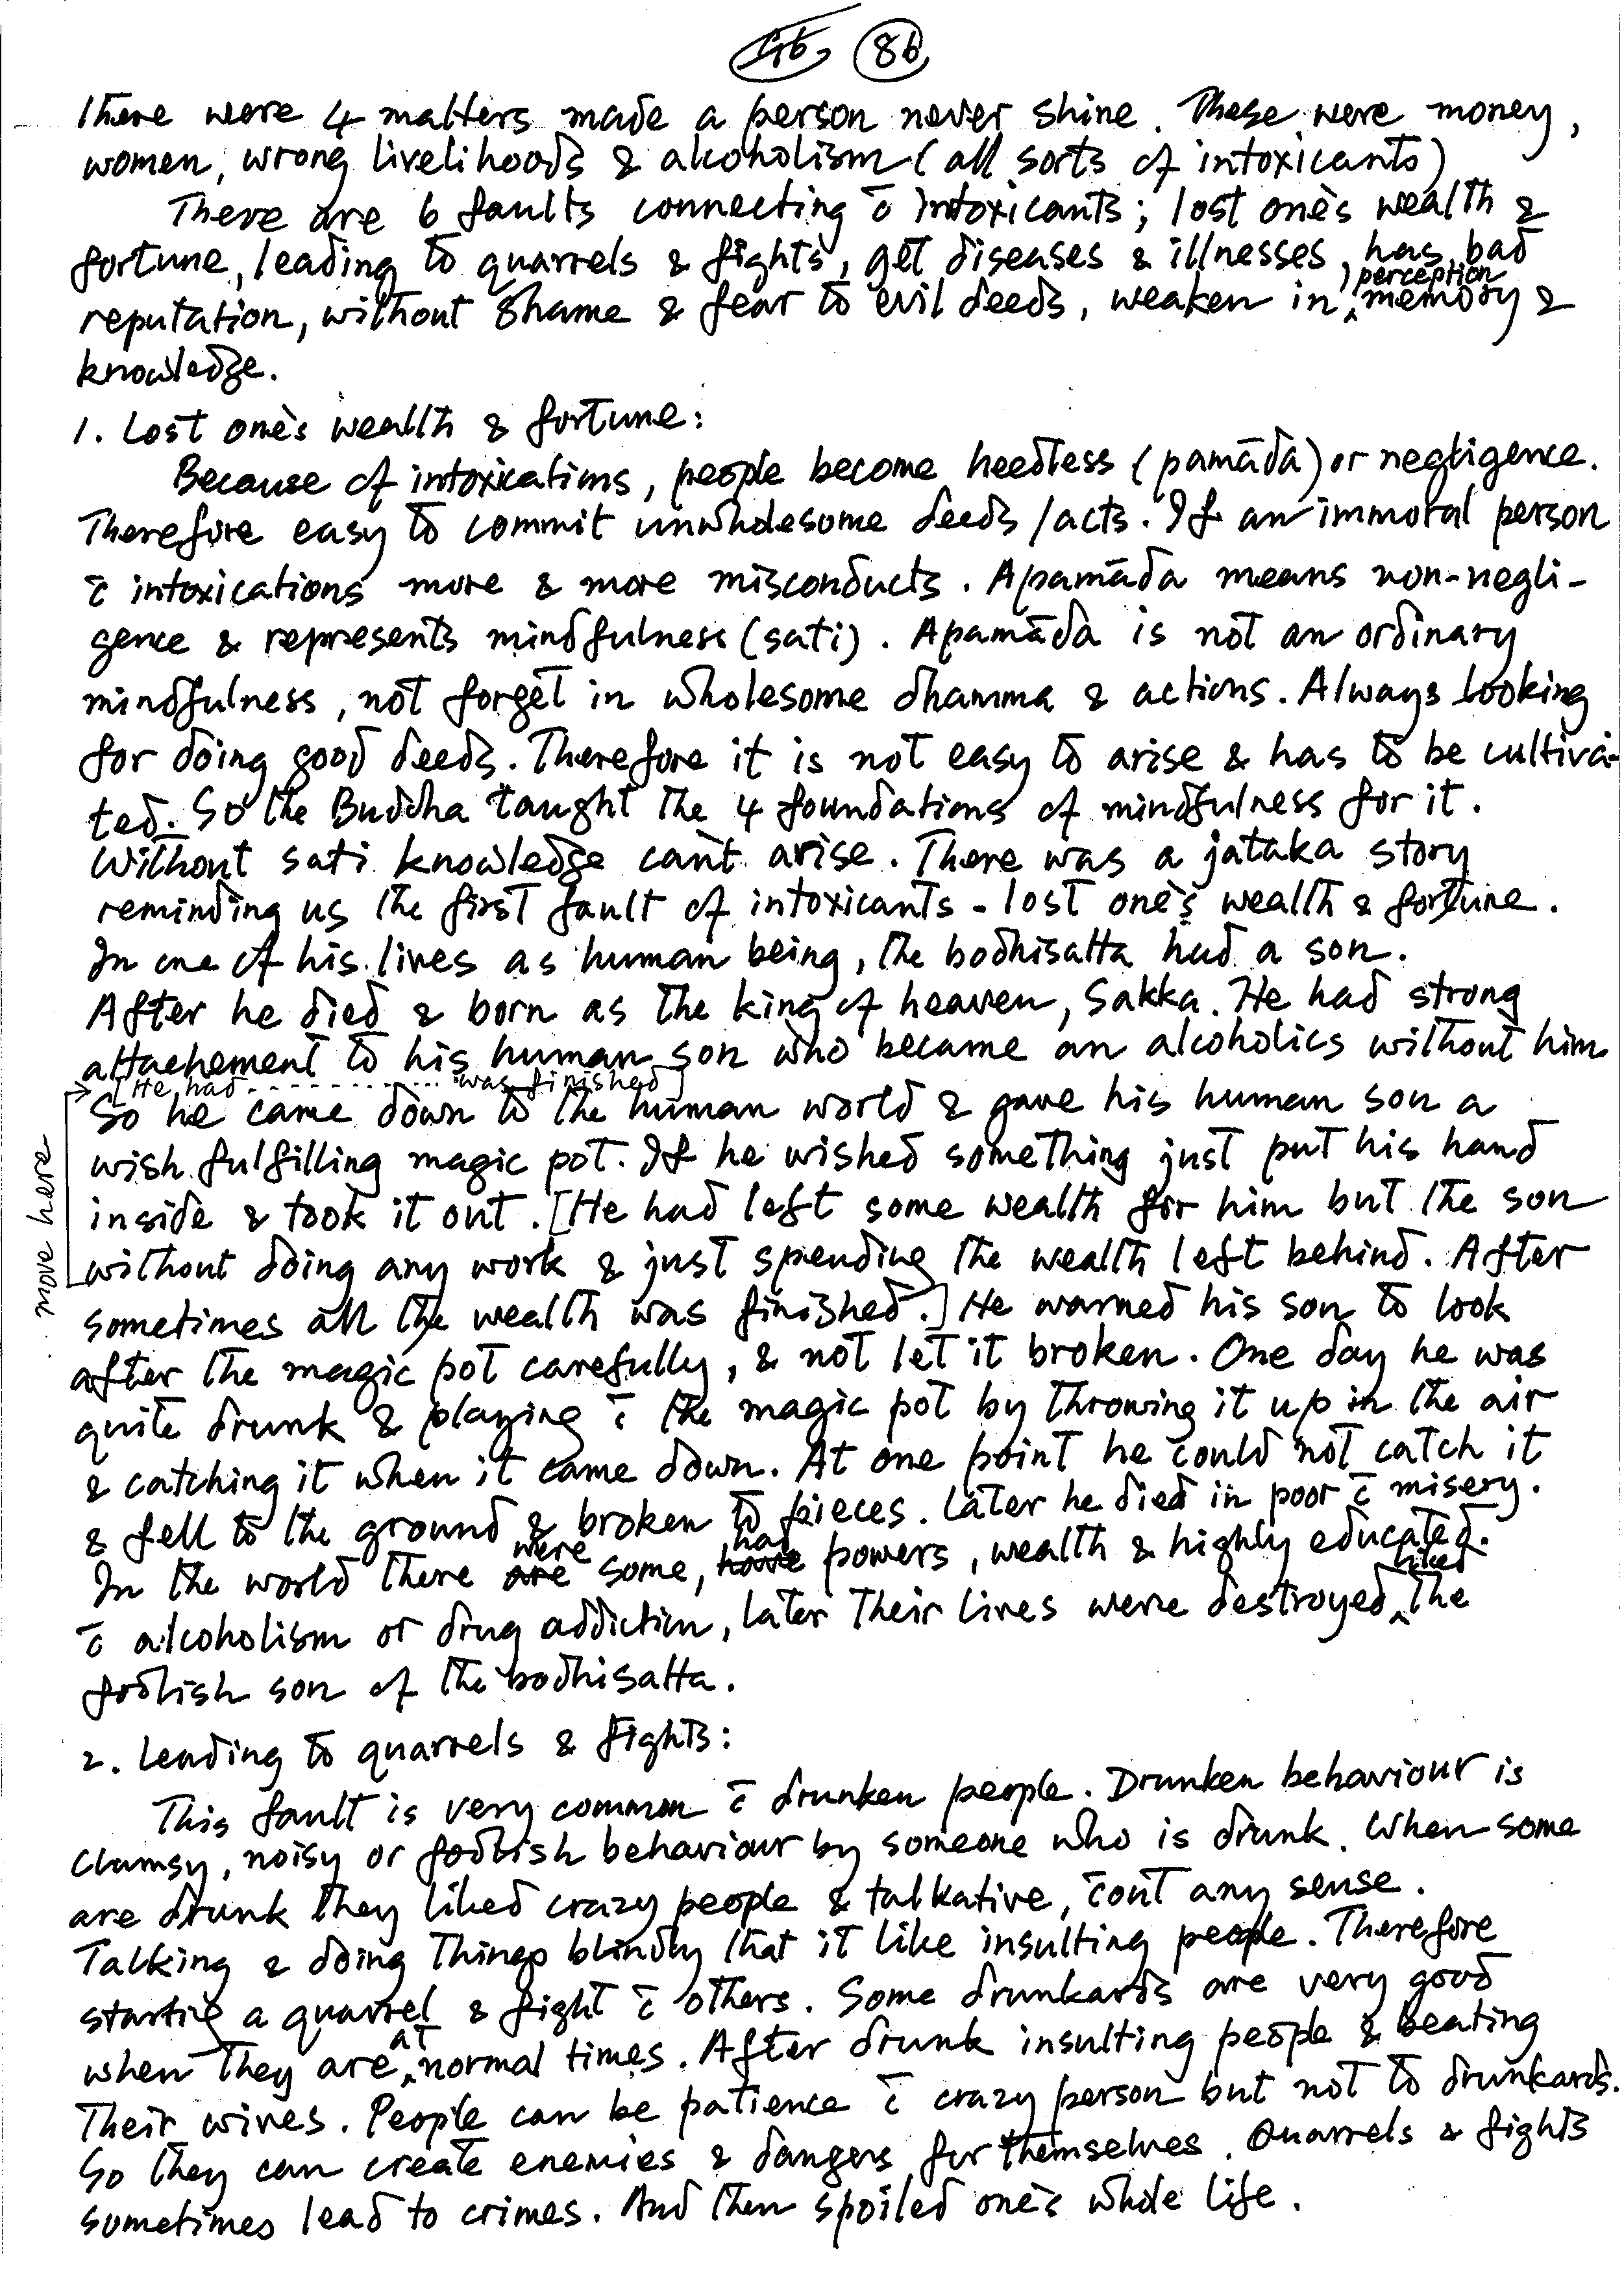 86
There were 4 matters made a person never shine. These were money,
women, wrong livelihoods & alcoholism (all sorts of intoxicants)
There are 6 faults connecting c̄ intoxicants; lost one's wealth &
fortune, leading to quarrels & fights, get diseases & illnesses, has bad
perception,
reputation, without shame & fear to evil deeds, weaken in ^ memory &
knowledge.
1. Lost one's wealth & fortune:
Because of intoxications, people become heedless (pamāda) or negligence.
Therefore easy to commit unwholesome deeds/acts. If an immoral person
c̄ intoxications more & more misconducts. Apamāda means non-negli-
gence & represents mindfulness (sati). Apamāda is not an ordinary
mindfulness, not forget in wholesome dhamma & actions. Always looking
for doing good deeds. Therefore it is not easy to arise & has to be cultiva-
ted. So the Buddha taught the 4 foundations of mindfulness for it.
Without sati knowledge can't arise. There was a jataka story
reminding us the first fault of intoxicants - lost one's wealth & fortune.
In one of his lives as human being, the bodhisatta had a son.
After he died & born as the king of heaven, Sakka. He had strong
attachement to his human son who became an alcoholics without him
[He had ............ was finished]
So he came down to the human world & gave his human son a
wish fulfilling magic pot. If he wished something just put his hand
inside & took it out. [He had left some wealth for him but the son
without doing any work & just spending the wealth left behind. After
sometimes all the wealth was finished.] He warned his son to look
move here
after the magic pot carefully, & not let it broken. One day he was
quite drunk & playing c̄ the magic pot by throwing it up in the air
& catching it when it came down. At one point he could not catch it
& fell to the ground & broken to pieces. Later he died in poor c̄ misery.
were had
In the world there are some, have powers, wealth & highly educated.
liked
c̄ alcoholism or drug addiction, later their lives were destroyed ^ the
foolish son of the bodhisatta.
2. Leading to quarrels & fights:
This fault is very common c̄ drunken people. Drunken behaviour is
clumsy, noisy or foolish behaviour by someone who is drunk. When some
are drunk they liked crazy people & talkative, c̄out any sense.
Talking & doing things blindly that it like insulting people. Therefore
starting a quarrel & fight c̄ others. Some drunkards are very good
at
when they are ^ normal times. After drunk insulting people & beating
their wives. People can be patience c̄ crazy person but not to drunkards.
So they can create enemies & dangers for themselves. Quarrels & fights
sometimes lead to crimes. And then spoiled one's whole life.